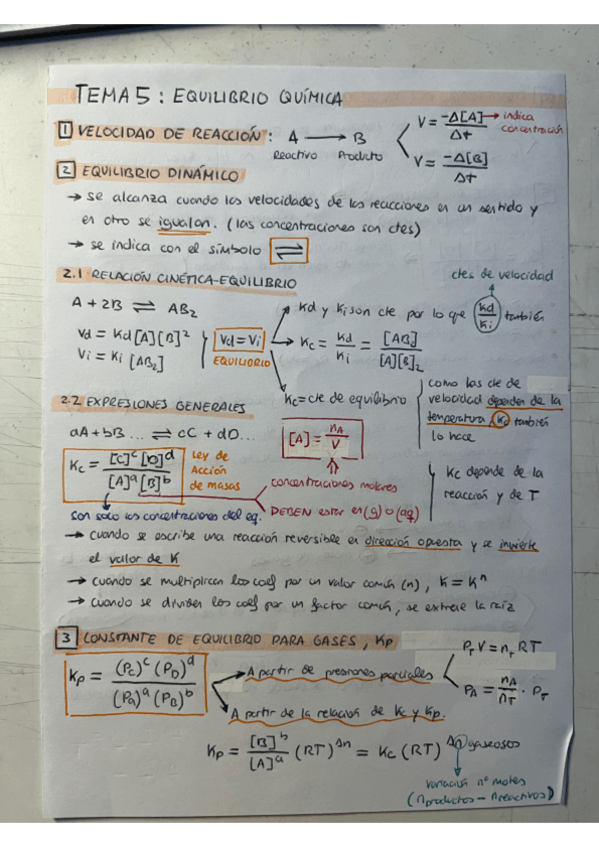 TEMA 5 : EQUILIBRIO QUÍMICA
1 VELOCIDAD DE REACCIÓN : A → B
Reactivo Producto
V = -Δ[A]/Δt → indica concentración
V = -Δ[B]/Δt
2 EQUILIBRIO DINÁMICO
→ se alcanza cuando las velocidades de las reacciones en un sentido y
en otro se igualan. (las concentraciones son ctes)
→ se indica con el símbolo ⇌
2.1 RELACIÓN CINÉTICA-EQUILIBRIO
ctes de velocidad
A + 2B ⇌ AB₂
Vd = Kd[A][B]²
Vi = Ki [AB₂]
Vd = Vi
EQUILIBRIO
Kd y Ki son cte por lo que Kd/Ki también
Kc = Kd/Ki = [AB]/[A][B]₂
Kc = cte de equilibrio
como las cte de
velocidad dependen de la
temperatura, Kc también
lo hace
2.2 EXPRESIONES GENERALES
aA + bB ... ⇌ cC + dD...
[A] = nA/V
Kc = [C]^c [D]^d / [A]^a [B]^b
Ley de
Acción
de masas
concentraciones molares
DEBEN estar en (g) o (aq)
Kc depende de la
reacción y de T
son solo las concentraciones del eq.
→ cuando se escribe una reacción reversible en dirección opuesta y se invierte
el valor de K
→ cuando se multiplican los coef por un valor común (n), K = Kⁿ
→ cuando se dividen los coef por un factor común, se extrae la raíz
3 CONSTANTE DE EQUILIBRIO PARA GASES, Kp
Kp = (Pc)^c (PD)^d / (PA)^a (PB)^b
A partir de presiones parciales
PT V = nT RT
PA = nA/nT · PT
A partir de la relación de Kc y Kp.
Kp = [B]^b/[A]^a (RT)^Δn = Kc (RT)^Δn gaseosos
variación nº moles
(nproductos - nreactivos)